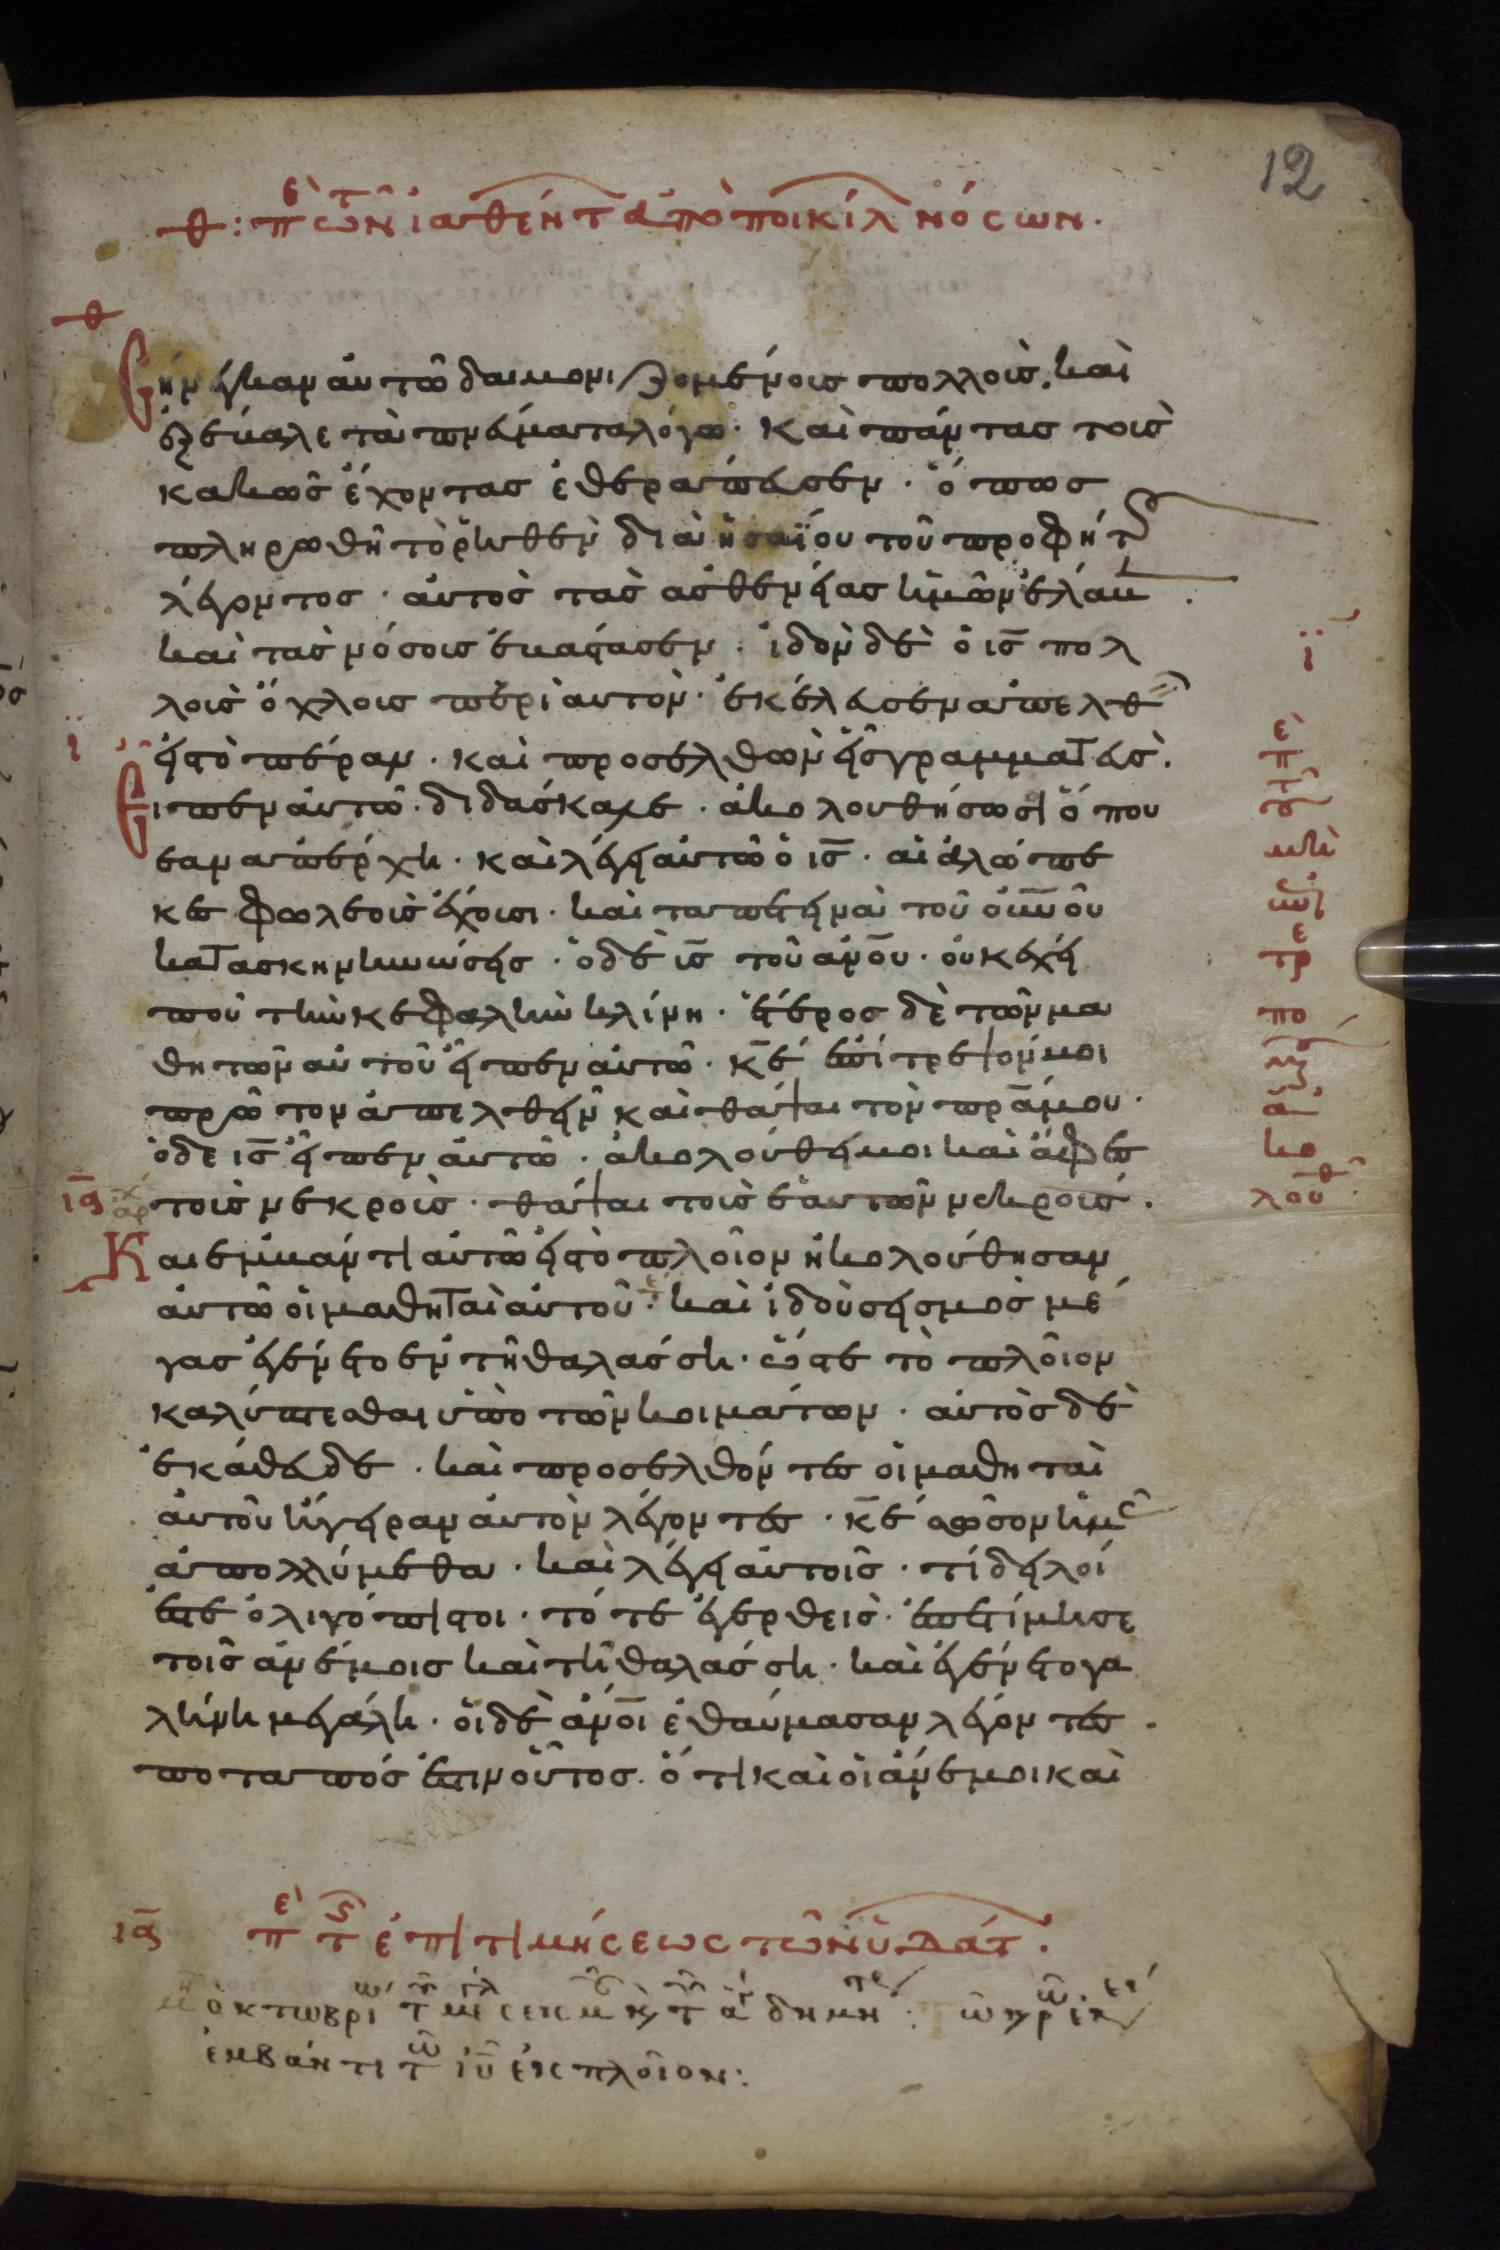 12
θ: πε τῶν ἰαθέντ ἀπὸ ποικίλ νόσων.
θ
ήνεγκαν αὐτῶ δαιμονιζομένοις πολλοὺς, καὶ
ἐξέβαλε τὰ πνεύματα λόγω. καὶ πάντας τοὺς
κακῶς ἔχοντας ἐθεράπευσεν. ὅπως
πληρωθῆ τὸ ρηθὲν διὰ ἡσαΐου τοῦ προφήτου
λέγοντος. αὐτὸς τὰς ἀσθενείας ἡμῶν ἔλαβε.
καὶ τὰς νόσους ἐβάστασεν. ἰδὼν δὲ ὁ ις πολ
λοὺς ὄχλους περὶ αὐτὸν. ἐκέλευσεν ἀπελθεῖν
ϊ εἰς τὸ πέραν. καὶ προσελθὼν εἷς γραμματεὺς.
Εἶπεν αὐτῶ. διδάσκαλε. ἀκολουθήσω σοι ὅπου
ἐὰν ἀπέρχη. καὶ λέγει αὐτῶ ὁ ις. αἱ ἀλώπε
κες φωλεοὺς ἔχουσι. καὶ τὰ πετεινὰ τοῦ οὐνοῦ
κατασκηνώσεις. ὁ δὲ υς τοῦ ανου. οὐκ ἔχει
ποῦ τὴν κεφαλὴν κλίνη. ἕτερος δὲ τῶν μα
θητῶν αὐτοῦ εἶπεν αὐτῶ. κε ἐπίτρεψόν μοι
πρῶτον ἀπελθεῖν καὶ θάψαι τὸν πρα μου.
ὁ δὲ ις εἶπεν αὐτῶ. ἀκολούθει μοι καὶ ἄφες
τοὺς νεκροὺς. θάψαι τοὺς ἑαυτῶν νεκρούς.
ια Καὶ ἐμβάντι αὐτῶ εἰς τὸ πλοῖον ἠκολούθησαν
αὐτῶ οἱ μαθηταὶ αὐτοῦ. καὶ ἰδοὺ σεισμὸς μέ
γας ἐγένετο ἐν τῆ θαλάσση. ὥστε τὸ πλοῖον
καλύπτεσθαι ὑπὸ τῶν κυμάτων. αὐτὸς δὲ
ἐκάθευδε. καὶ προσελθόντες οἱ μαθηταὶ
αὐτοῦ ἤγειραν αὐτὸν λέγοντες. κε σῶσον ἡμᾶς
ἀπολλύμεθα. καὶ λέγει αὐτοῖς. τί δειλοί
ἐστε ὀλιγόπιστοι. τότε ἐγερθεὶς. ἐπετίμησε
τοῖς ἀνέμοις καὶ τῆ θαλάσση. καὶ ἐγένετο γα
λήνη μεγάλη. οἱ δὲ ανοι ἐθαύμασαν λέγοντες.
ποταπός ἐστιν οὗτος. ὅτι καὶ οἱ ἄνεμοι καὶ
ϊ
πε
τοῦ
μὴ
τρε
πο
ἀ
κο
λουθ
ια πε τ ἐπιτιμήσεως τῶν ὑδάτ.
ὀκτωβρι
ἐμβάντι τῶ ιυ εἰς πλοῖον: